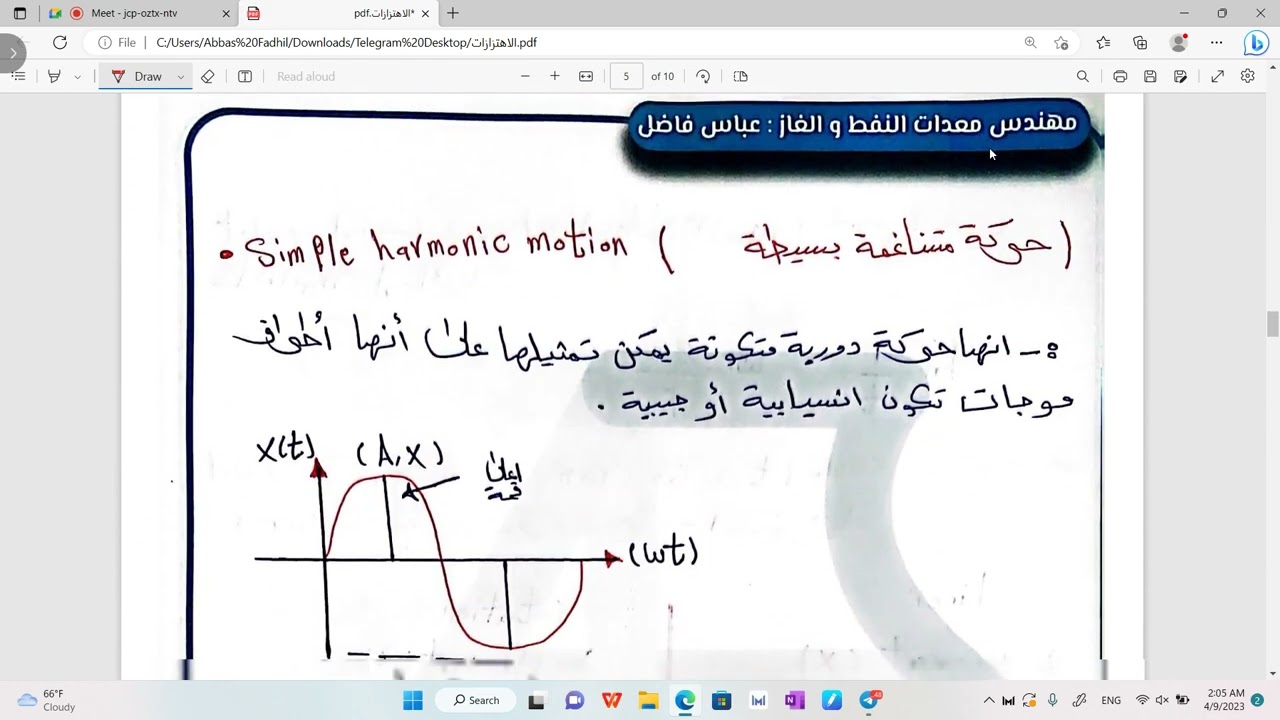 Meet - jcp-oztx-ntv
الاهتزازات.pdf*
File
C:/Users/Abbas%20Fadhil/Downloads/Telegram%20Desktop/الاهتزازات.pdf
Draw
Read aloud
5
of 10
مهندس معدات النفط و الغاز : عباس فاضل
• Simple harmonic motion ( حركة متناغمة بسيطة )
:- انها حركة دورية متكونة يمكن تمثيلها على أنها أطواف
موجات تكون انسيابية أو جيبية .
X(t)
(A,X)
اعلى
قمة
(wt)
66°F
Cloudy
Search
ENG
2:05 AM
4/9/2023
2